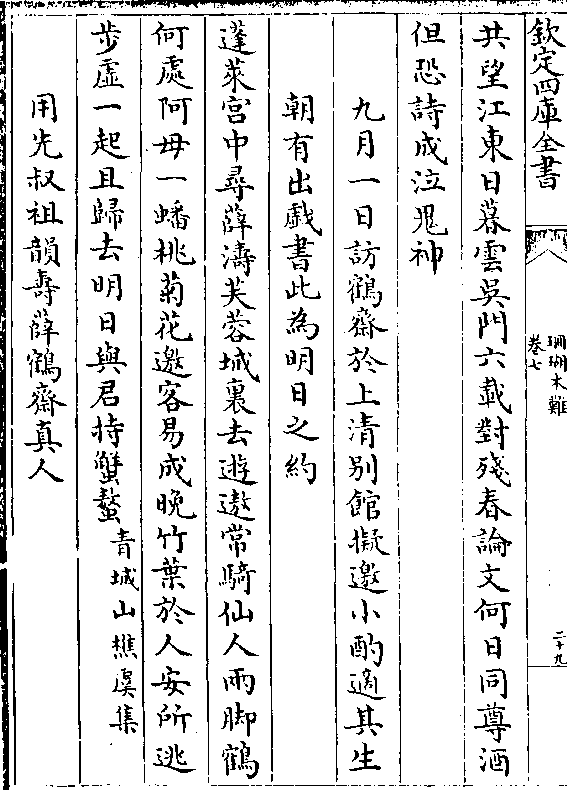 欽定四庫全書
珊瑚木難
卷七
二十九
共望江東日暮雲吳門六載對殘春論文何日同尊酒
但恐詩成泣鬼神
九月一日訪鶴齋於上清别館擬邀小酌適其生
朝有出戲書此為明日之約
蓬萊宫中尋薛濤芙蓉城裏去遊遨常騎仙人兩脚鶴
何處阿母一蟠桃菊花邀客易成晚竹葉於人安所逃
步虛一起且歸去明日與君持蟹螯
青城山樵虞集
用先叔祖韻壽薛鶴齋真人